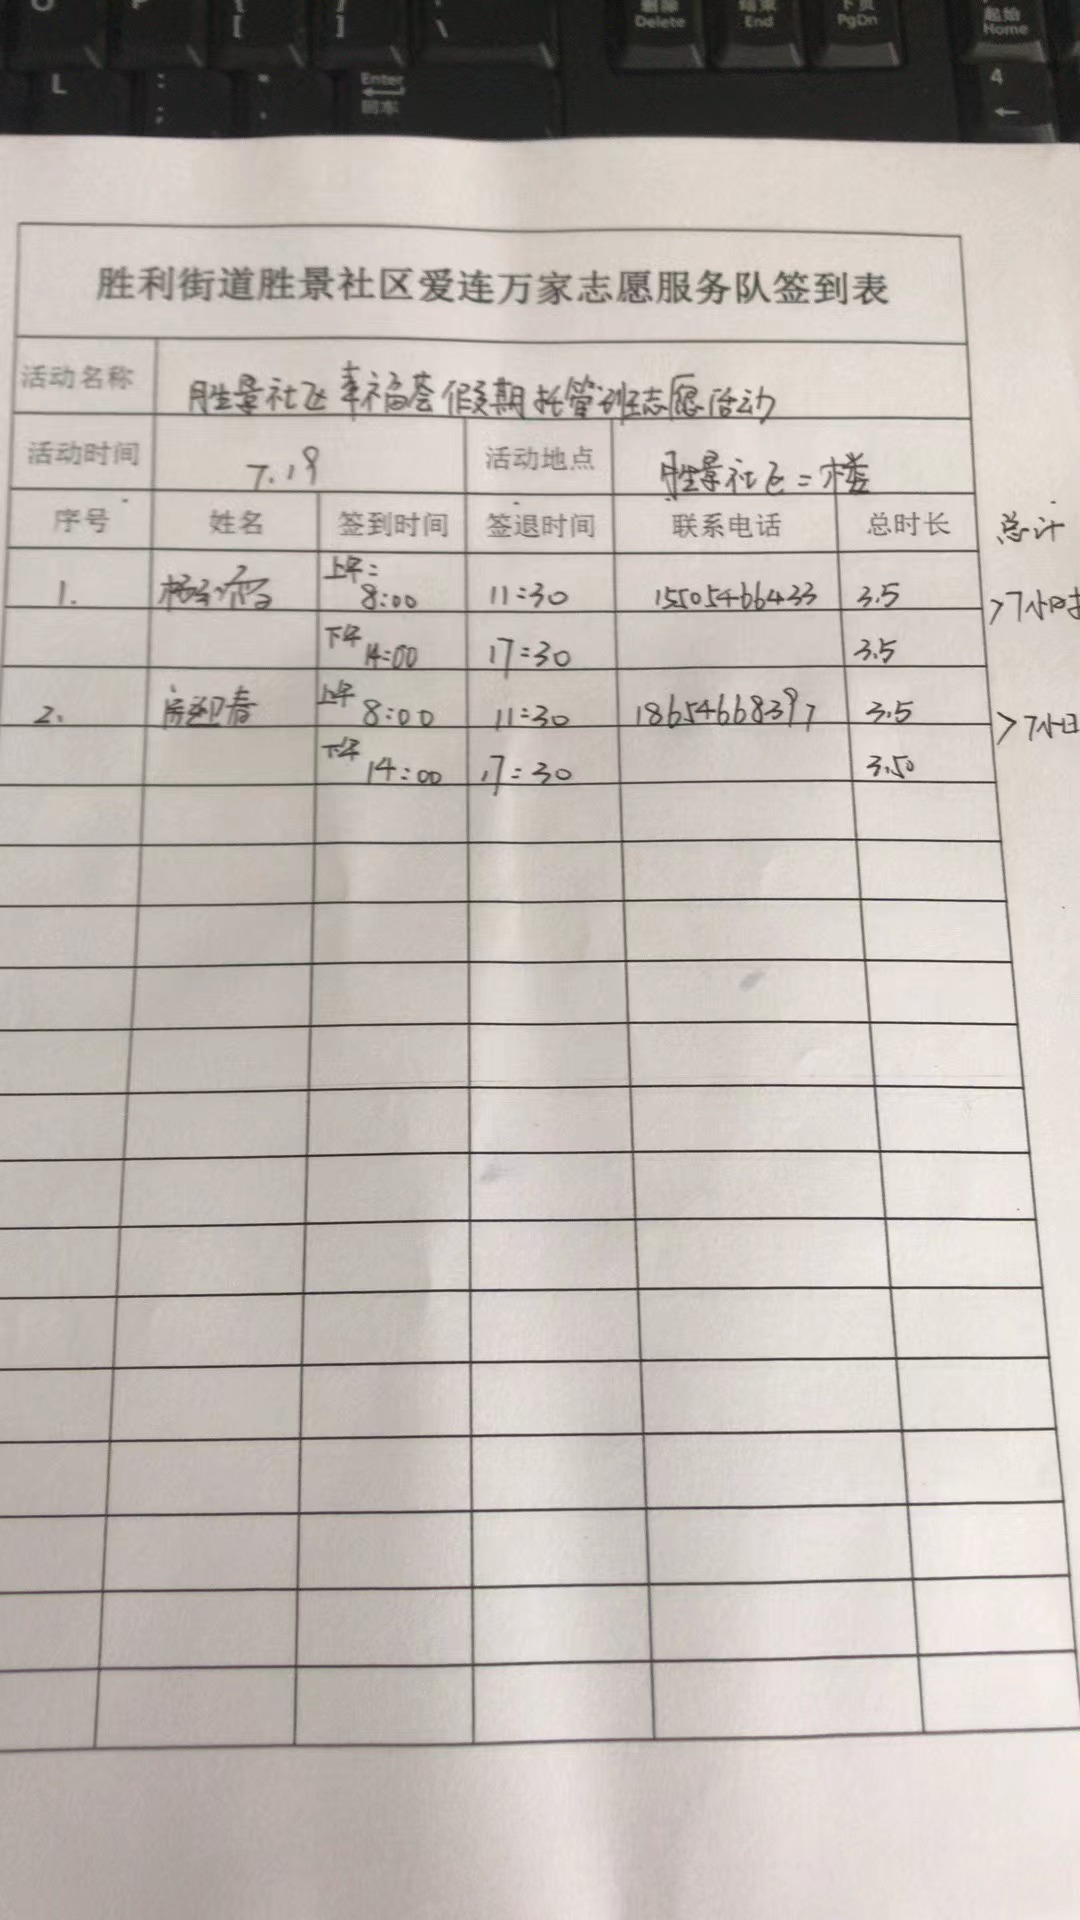 P
{
[
}
]
\
删除
Delete
结束
End
下页
PgDn
起始
Home
L
:
;
"
Enter
回车
4
←
胜利街道胜景社区爱连万家志愿服务队签到表
活动名称 胜景社区幸福荟假期托管班志愿活动
活动时间 7.19 活动地点 胜景社区二楼
序号 姓名 签到时间 签退时间 联系电话 总时长 总计
1. 上午: 8:00 11:30 15505466433 3.5 >7小时
下午 14:00 17:30 3.5
2. 房迎春 上午 8:00 11:30 18654668397 3.5 >7小
下午 14:00 17:30 3.50